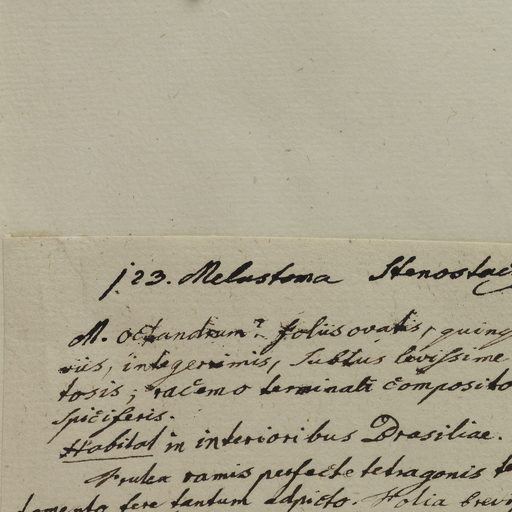 123. Melastoma Stenostac
M. octandrum? foliis ovatis, quinq
viis, integerrimis, subtus levissime
tosis; racemo terminali composito
spiciferis.
Habitat in interioribus Brasiliae.
Frutex ramis perfecte tetragonis te
tomento fere tantum adpicto. Folia brevi